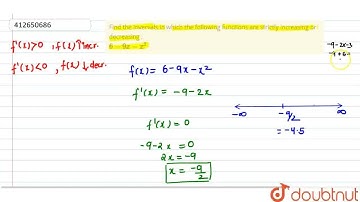 412650686
Find the intervals in which the following functions are strictly increasing or decreasing
6 − 9x − x²
f'(x)>0 , f(x)↑incr.
f'(x)<0 , f(x)↓decr.
f(x) = 6-9x-x²
f'(x) = -9-2x
f'(x) = 0
-9-2x = 0
2x = -9
x = -9/2
-9-2x-3
-9+6=
-∞ -9/2 ∞
= -4.5
doubtnut